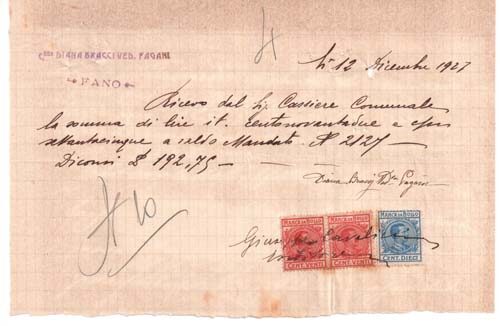 4
C.ssa DIANA BRACCI VED. PAGANI
FANO
Lì 12 Dicembre 1927
Ricevo dal Sig. Cassiere Comunale
la somma di lire it. Centonovantadue e cmi
settantacinque a saldo Mandato N 2127
Diconsi £ 192,75
Diana Bracci Ved. Pagani
N 10
MARCA DA BOLLO
MARCA DA BOLLO
MARCA DA BOLLO
Giuseppe
CENT. VENTI
CENT. VENTI
CENT. DIECI